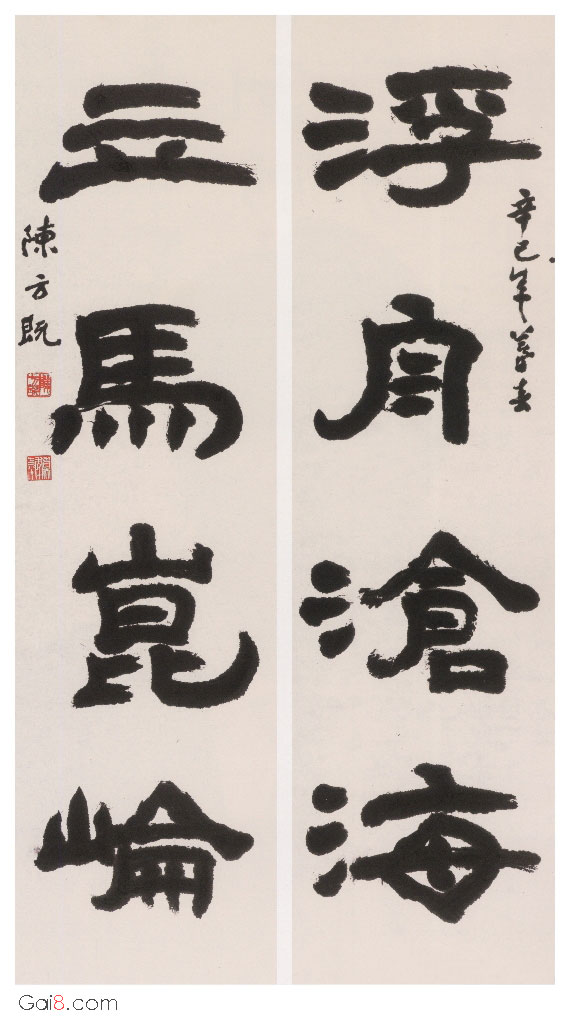 浮舟滄海
辛巳年暮春
立馬崑崙
陳方既
Gai8.com